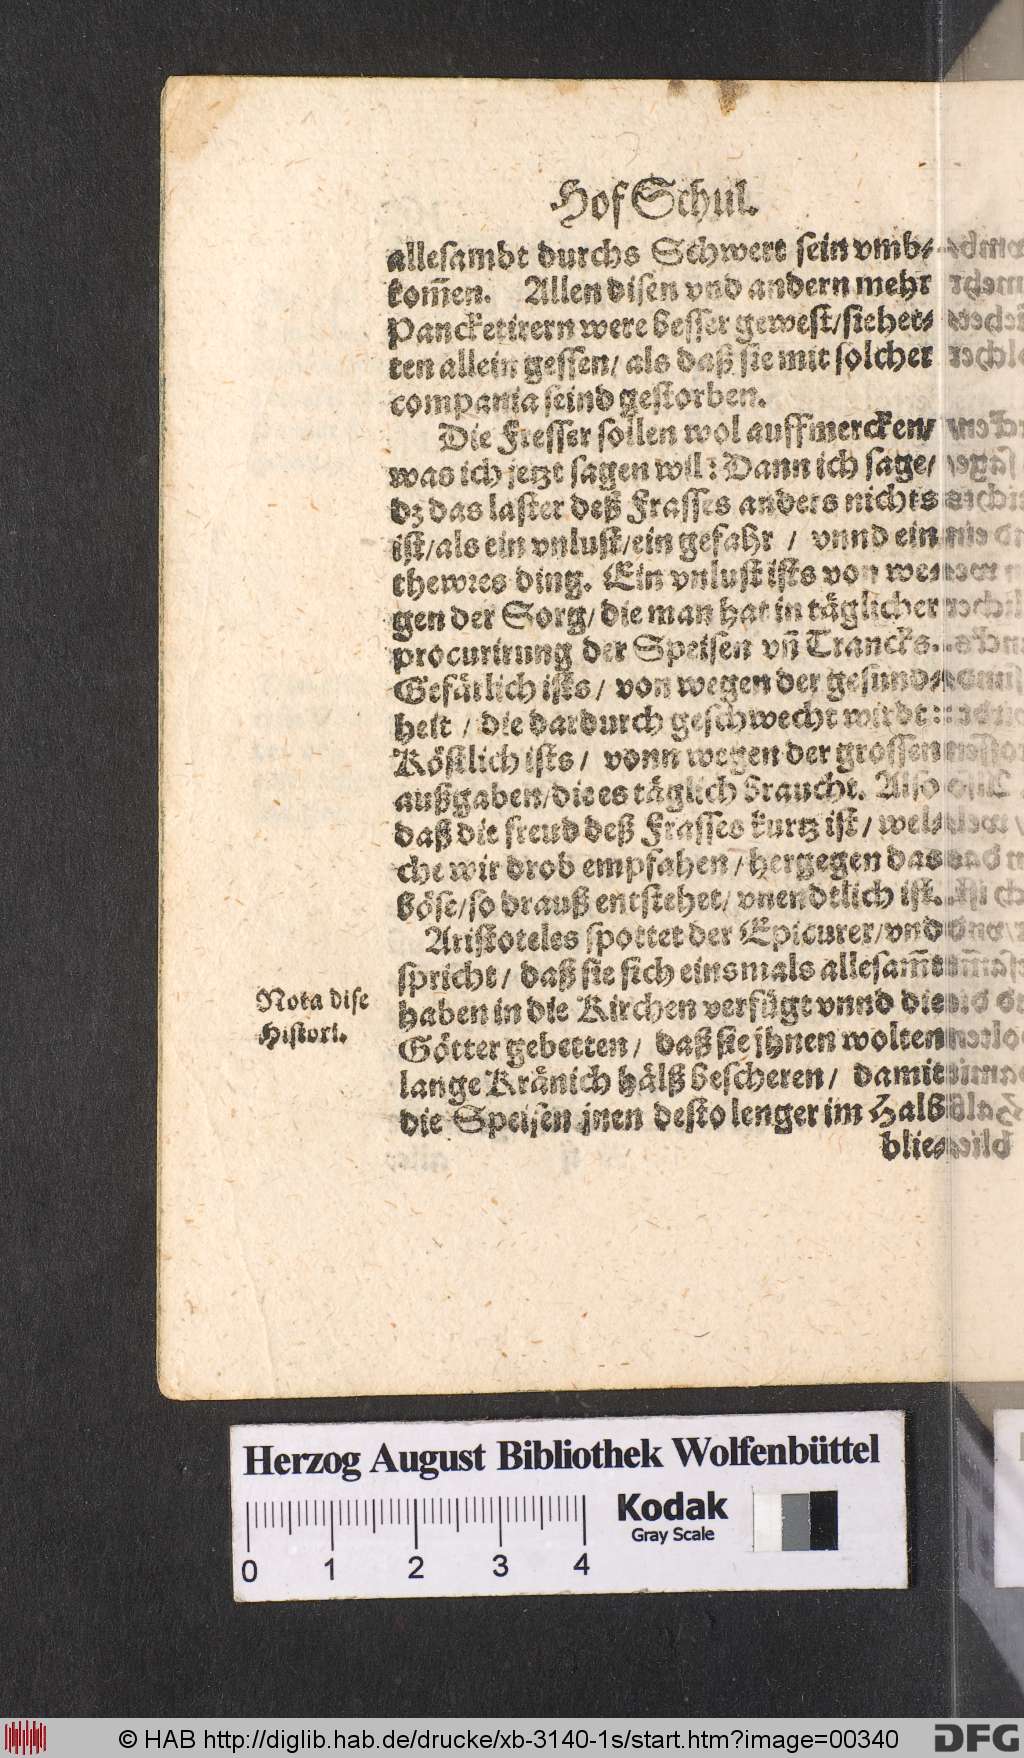 Hof Schul.
allesambt durchs Schwert sein vmb-
kom̃en. Allen disen vnd andern mehr
Pancketirern were besser gewest/sie het-
ten allein gessen/ als daß sie mit solcher
compania seind gestorben.
Die Fresser sollen wol auffmercken/
was ich jetzt sagen wil: Dann ich sage/
dz das laster deß Frasses anders nichts
ist/als ein vnlust/ein gefahr / vnnd ein
thewres ding. Ein vnlust ists von we-
gen der Sorg/ die man hat in täglicher
procurirung der Speisen vñ Trancks.
Gefärlich ists / von wegen der gesund-
heit / die dardurch geschwecht wirdt:
Köstlich ists / vonn wegen der grossen
außgaben/die es täglich braucht. Also
daß die freud deß Frasses kurtz ist / wel-
che wir drob empfahen / hergegen das
böse/so drauß entstehet/ vnendtlich ist.
Aristoteles spottet der Epicurer/vnd
spricht / daß sie sich einsmals allesam̃t
Nota dise
Histori.
haben in die Kirchen verfügt vnnd die
Götter gebetten / daß sie jhnen wolten
lange Kränich hälß bescheren / damit
die Speisen jnen desto lenger im Halß
blie-
Herzog August Bibliothek Wolfenbüttel
Kodak
Gray Scale
0 1 2 3 4
© HAB http://diglib.hab.de/drucke/xb-3140-1s/start.htm?image=00340
DFG